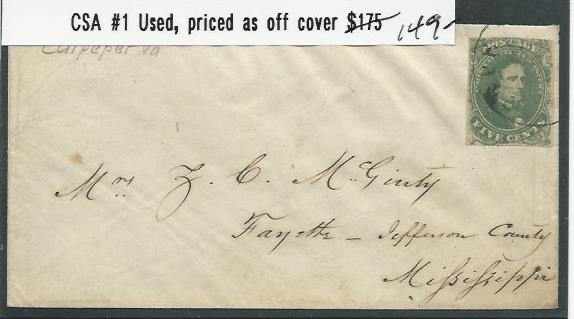 CSA #1 Used, priced as off cover $175 149-
Culpeper Va
POSTAGE
CONFEDERATE STATES OF AMERICA
FIVE CENTS
Mrs Z. C. McGinty
Fayette – Jefferson County
Mississippi